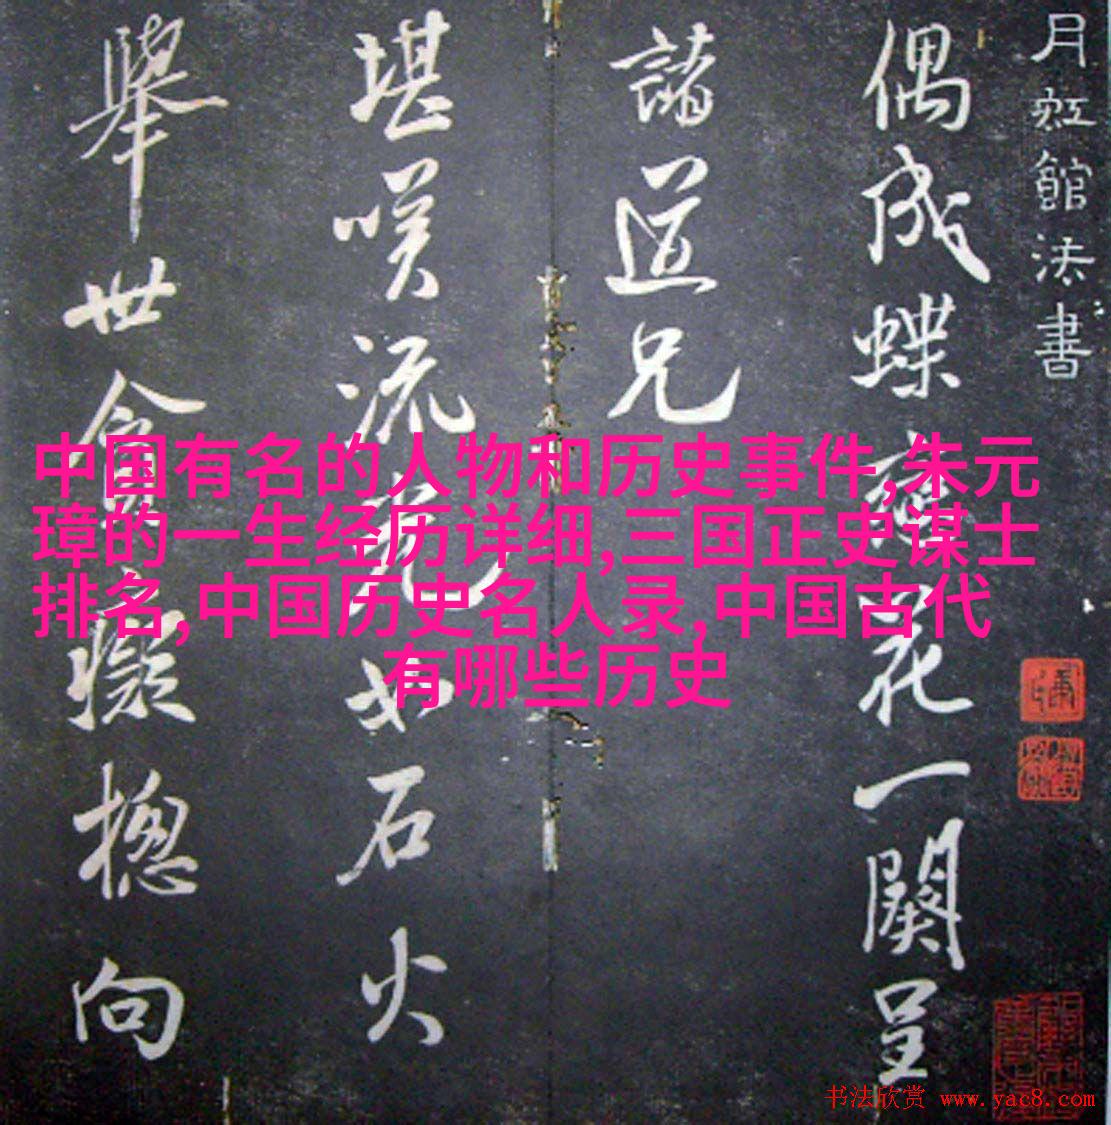 月虹館法書
偶成蝶戀花一闋呈
諸道兄
堪嘆流光如石火
舉世貪癡摠向
中国有名的人物和历史事件,朱元
璋的一生经历详细,三国正史谋士
排名,中国历史名人录,中国古代
有哪些历史
书法欣赏 www.yac8.com